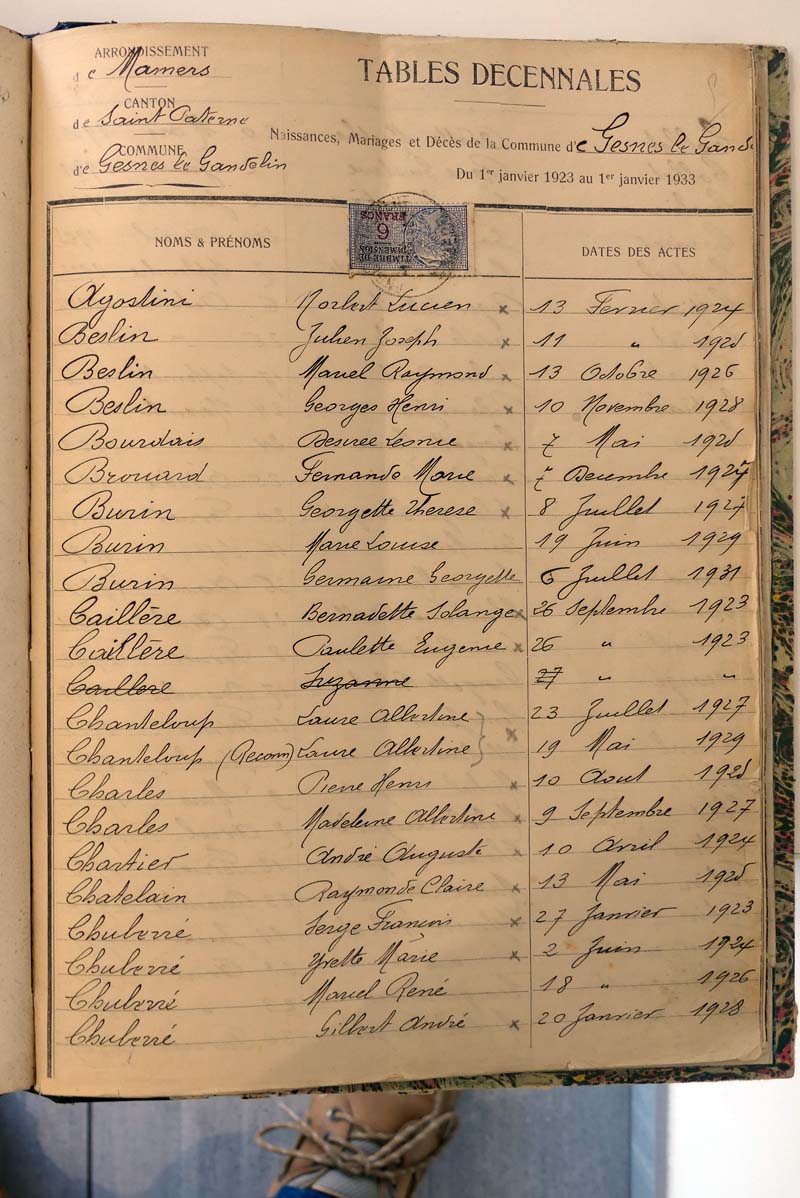 ARRONDISSEMENT
de Mamers
CANTON
de Saint Paterne
COMMUNE
de Gesnes le Gandelin
TABLES DECENNALES
Naissances, Mariages et Décès de la Commune de Gesnes le Gande
Du 1er janvier 1923 au 1er janvier 1933
TIMBRE DE
DIMENSION
6
FRANCS
NOMS & PRÉNOMS DATES DES ACTES
Agostini Norbert Lucien x 13 Fevrier 1924
Beslin Julien Joseph x 11 " 1925
Beslin Marcel Raymond x 13 Octobre 1926
Beslin Georges Henri x 10 Novembre 1928
Bourdais Desiree Léonie x 7 Mai 1925
Brouard Fernande Marie x 7 Decembre 1927
Burin Georgette Therese x 8 Juillet 1927
Burin Marie Louise 19 Juin 1929
Burin Germaine Georgette 6 Juillet 1931
Caillère Bernadette Solange x 26 Septembre 1923
Caillère Paulette Eugenie x 26 " 1923
Caillere Suzanne 27 " "
Chanteloup Laure Albertine x 23 Juillet 1927
Chanteloup (Reconn) Laure Albertine 19 Mai 1929
Charles Pierre Henri x 10 Aout 1925
Charles Madeleine Albertine x 9 Septembre 1927
Chartier André Auguste x 10 Avril 1924
Chatelain Raymonde Claire x 13 Mai 1925
Chuberré Serge Francois x 27 Janvier 1923
Chuberré Yvette Marie x 2 Juin 1924
Chuberré Marcel René 18 " 1926
Chuberré Gilbert André x 20 Janvier 1928